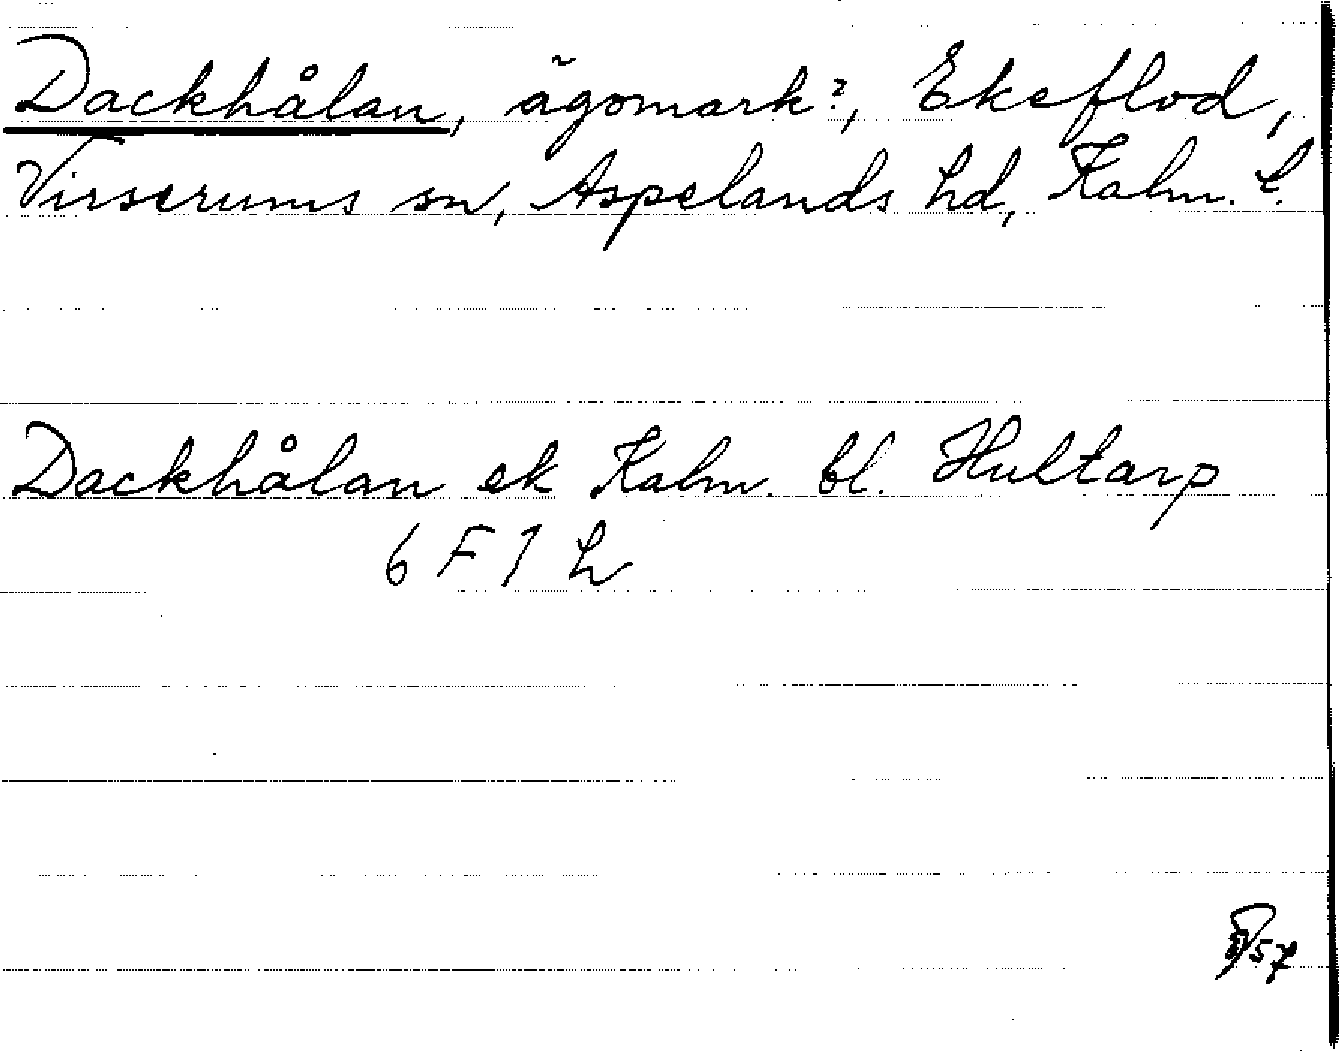 Dackhålan, ägomark?, Ekeflod,
Virserums sn, Aspelands hd, Kalm. l.
Dackhålan ek Kalm. bl. Hultarp
6 F 1 h
57